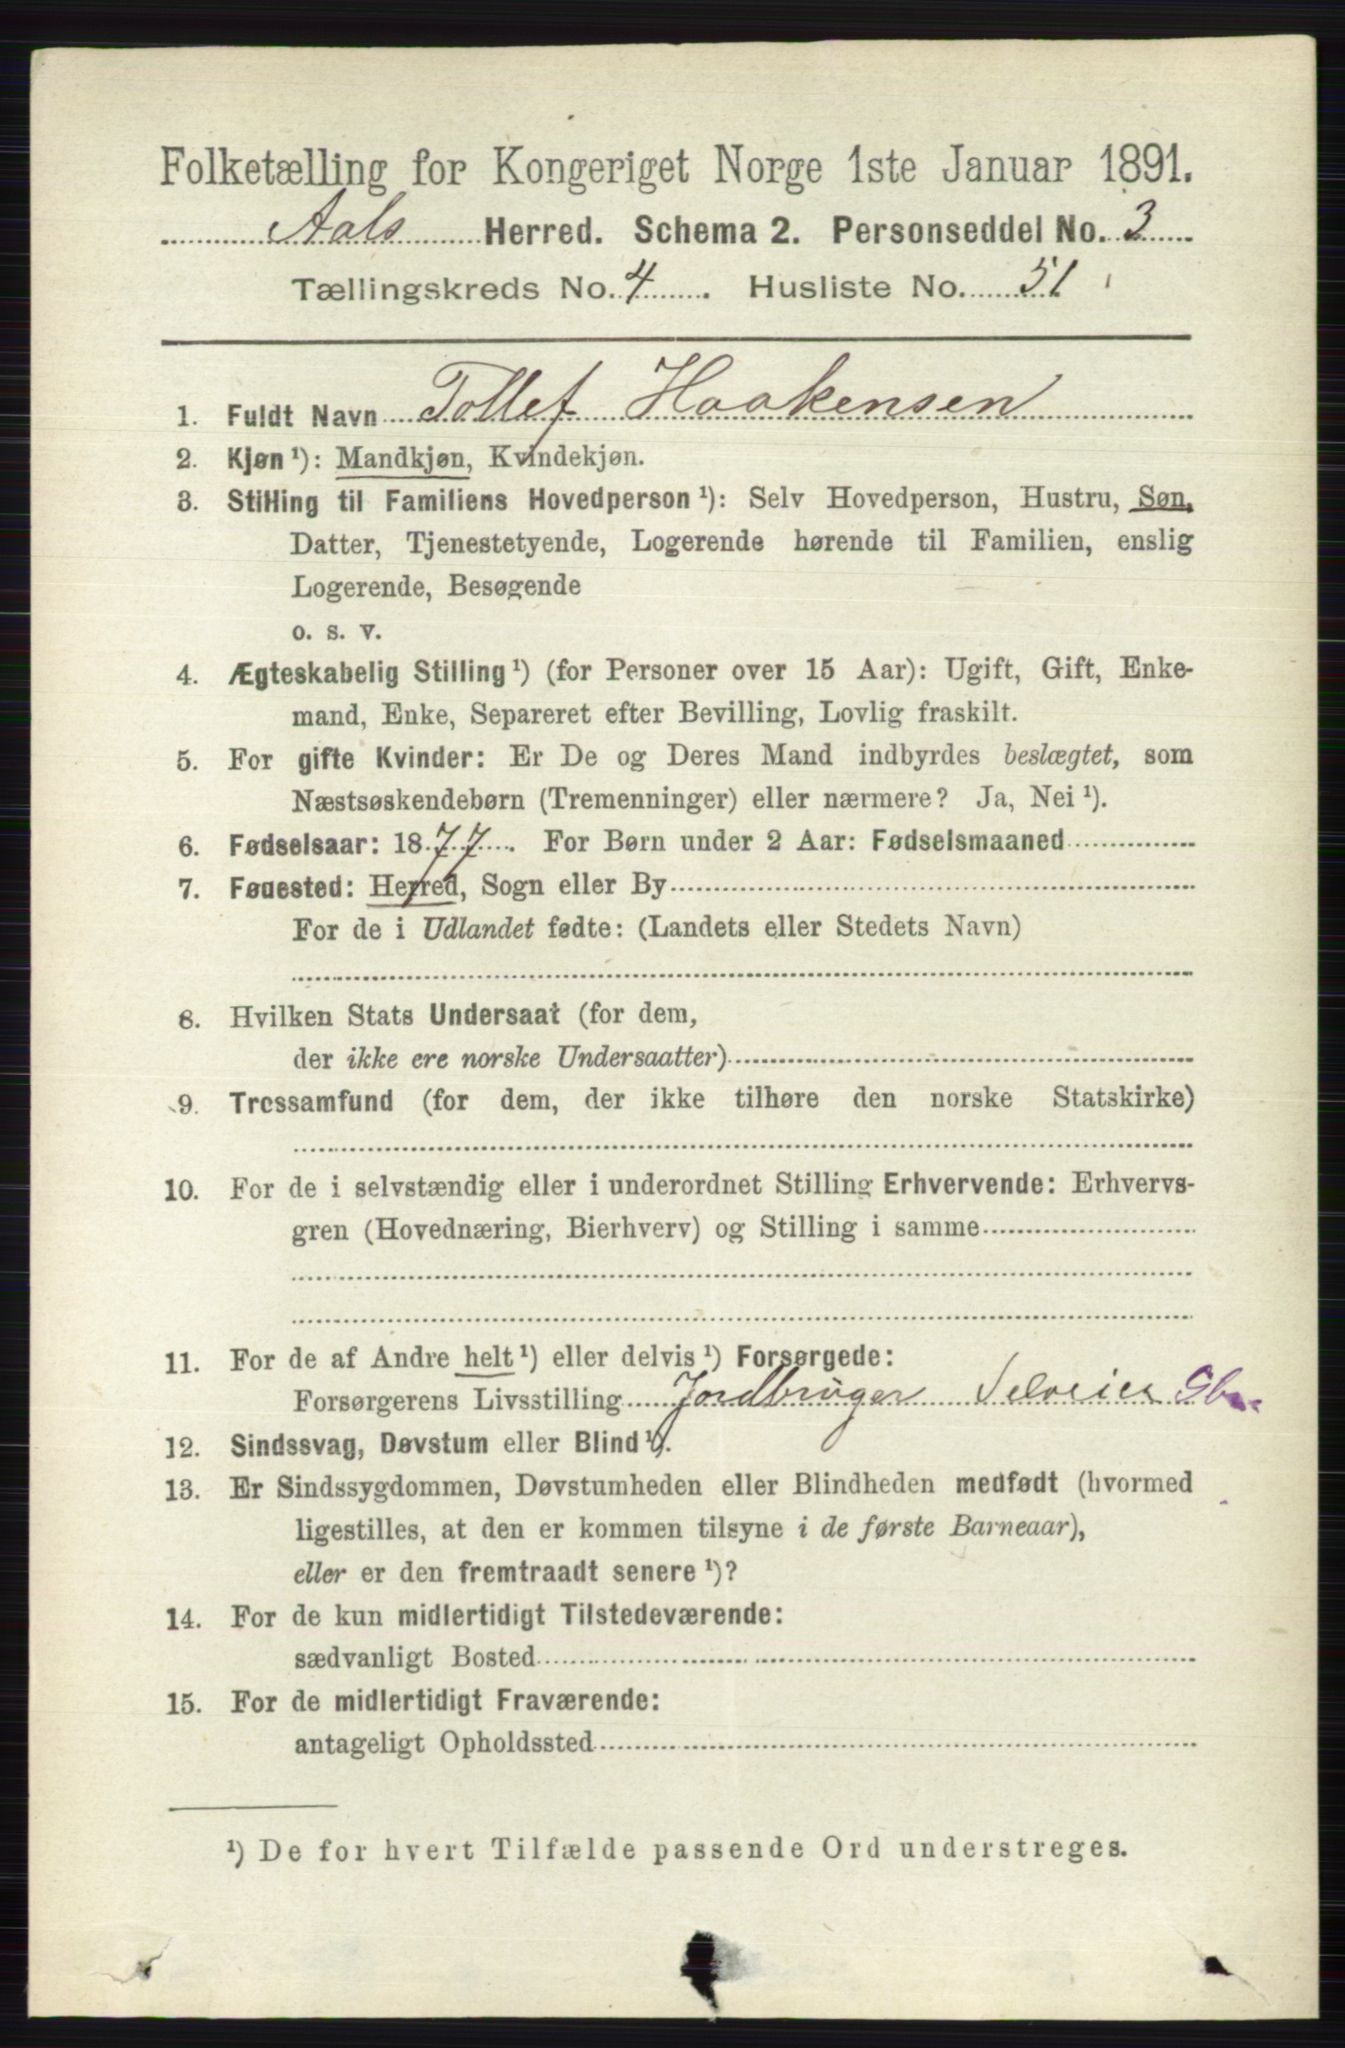 Folketælling for Kongeriget Norge 1ste Januar 1891.
Aals Herred. Schema 2. Personseddel No. 3
Tællingskreds No. 4. Husliste No. 51
1. Fuldt Navn Tollef Haakensen
2. Kjøn ¹): Mandkjøn, Kvindekjøn.
3. Stilling til Familiens Hovedperson ¹): Selv Hovedperson, Hustru, Søn,
Datter, Tjenestetyende, Logerende hørende til Familien, enslig
Logerende, Besøgende
o. s. v.
4. Ægteskabelig Stilling ¹) (for Personer over 15 Aar): Ugift, Gift, Enke-
mand, Enke, Separeret efter Bevilling, Lovlig fraskilt.
5. For gifte Kvinder: Er De og Deres Mand indbyrdes beslægtet, som
Næstsøskendebørn (Tremenninger) eller nærmere? Ja, Nei ¹).
6. Fødselsaar: 1877. For Børn under 2 Aar: Fødselsmaaned
7. Fødested: Herred, Sogn eller By
For de i Udlandet fødte: (Landets eller Stedets Navn)
8. Hvilken Stats Undersaat (for dem,
der ikke ere norske Undersaatter)
9. Trossamfund (for dem, der ikke tilhøre den norske Statskirke)
10. For de i selvstændig eller i underordnet Stilling Erhvervende: Erhvervs-
gren (Hovednæring, Bierhverv) og Stilling i samme
11. For de af Andre helt ¹) eller delvis ¹) Forsørgede:
Forsørgerens Livsstilling Jordbruger Selveier Gbr.
12. Sindssvag, Døvstum eller Blind ¹).
13. Er Sindssygdommen, Døvstumheden eller Blindheden medfødt (hvormed
ligestilles, at den er kommen tilsyne i de første Barneaar),
eller er den fremtraadt senere ¹)?
14. For de kun midlertidigt Tilstedeværende:
sædvanligt Bosted
15. For de midlertidigt Fraværende:
antageligt Opholdssted
¹) De for hvert Tilfælde passende Ord understreges.